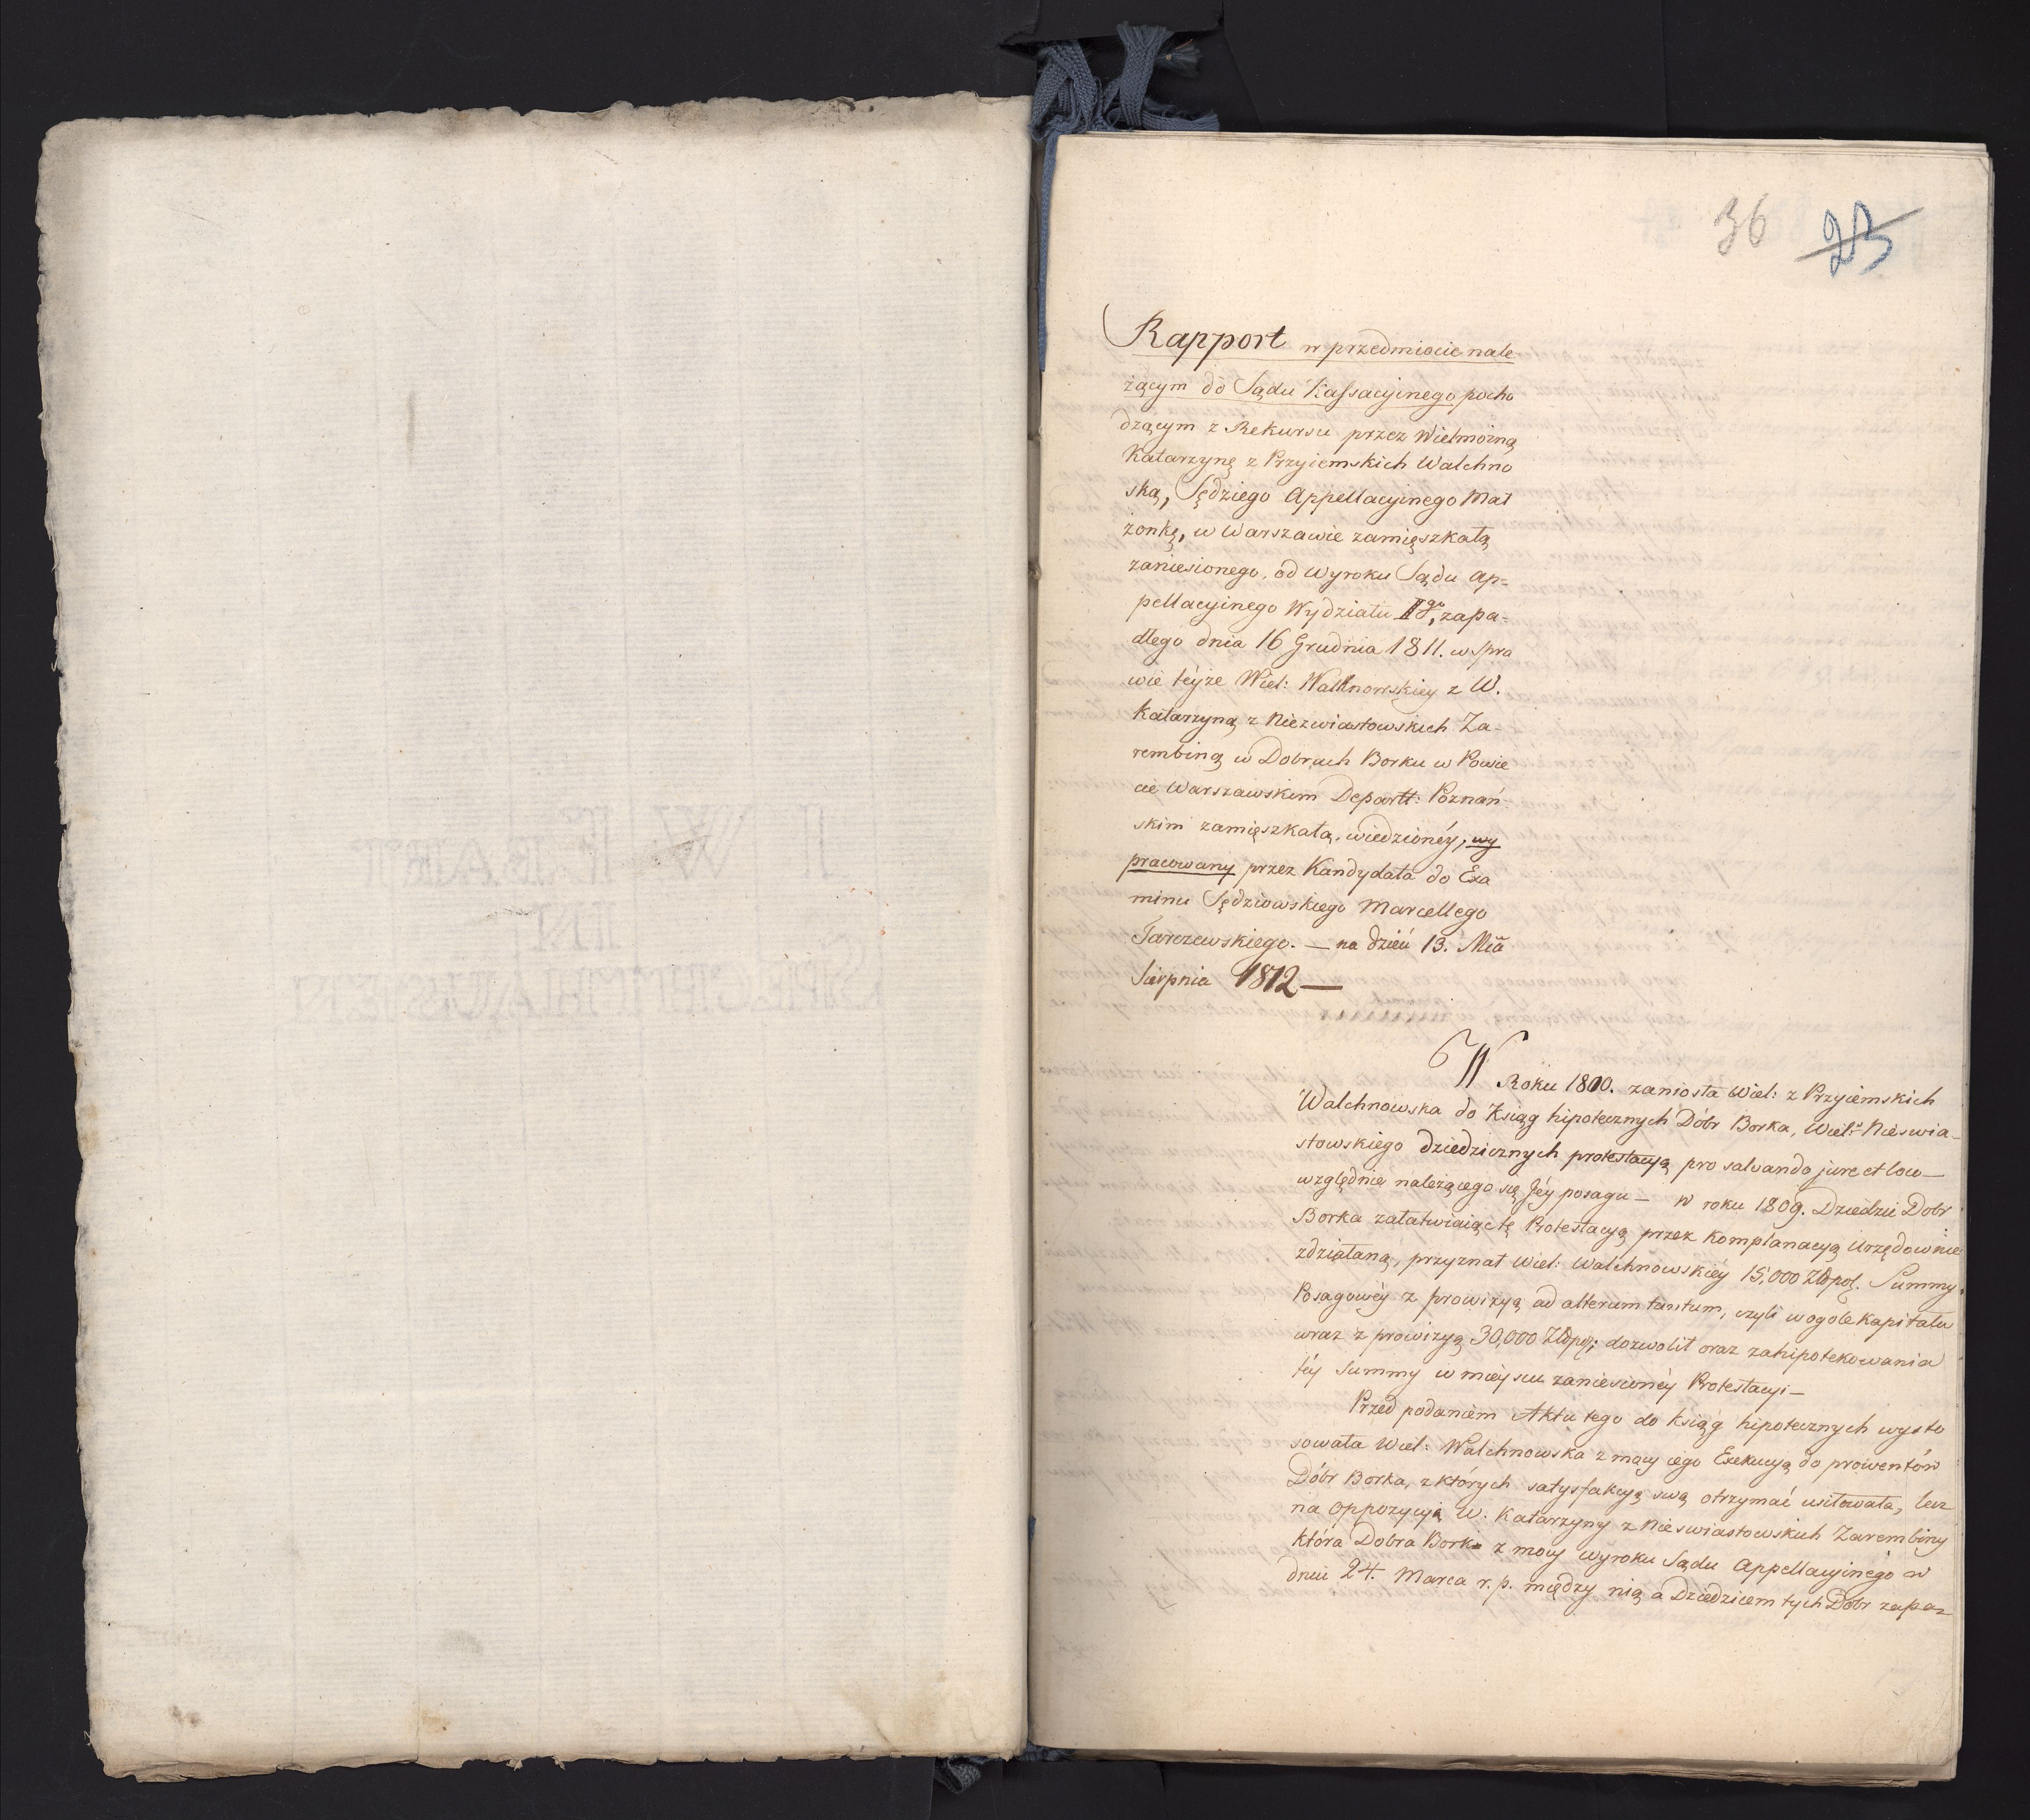 36 23
Rapport w przedmiocie nale
żącym do Sądu Kassacyinego pocho
dzącym z Rekursu przez Wielmożną
Katarzynę z Przyiemskich Walchno
ską, Sędziego Appellacyinego Mał
żonkę, w Warszawie zamięszkałą
zaniesionego, od Wyroku Sądu Ap=
pellacyinego Wydziału II go, zapa-
dłego dnia 16 Grudnia 1811. w Spra
wie téyże Wiel: Walknowskiey z W.
Katarzyną z Niezwiastowskich Za-
rembiną w Dobrach Borku w Powie
cie Warszawskim Departt: Poznań-
skim zamięszkałą, wiedzionéy, wy
pracowany przez Kandydata do Exa
minu Sędziowskiego Marcellego
Tarczewskiego. — na dzień 13. Mca
Sierpnia 1812 —
W Roku 1800. zaniosła Wiel: z Przyiemskich
Walchnowska do Ksiąg hipotecznych Dóbr Borka, Wiel: Nieswia-
stowskiego dziedzicznych protestacyą pro salvando jure et loco —
względnie należącego się Jéy posagu — W roku 1809. Dziedzic Dobr
Borka załatwiaiąc tę Protestacyą przez Komplanacyą Urzędownie
zdziałaną, przyznał Wiel: Walchnowskiéy 15,000 Złpol. Summy
Posagowéy z prowizyą ad alterum tantum, czyli wogole Kapitału
wraz z prowizyą 30,000 Złpol; dozwolił oraz zahipotekowania
téy Summy w mieyscu zaniesionéy Protestacyi —
Przed podaniem Aktu tego do ksiąg hipotecznych wysto
sowała Wiel: Walchnowska z mocy iego Exekucyą do prowentów
Dóbr Borka, z których satysfakcyą swą otrzymać usiłowała, lecz
na oppozycyą W. Katarzyny z Nieswiastowskich Zarembiny
która Dobra Borka z mocy wyroku Sądu Appellacyinego w
dniu 24. Marca r. p. między nią a Dziedzicem tych Dobr zapaz